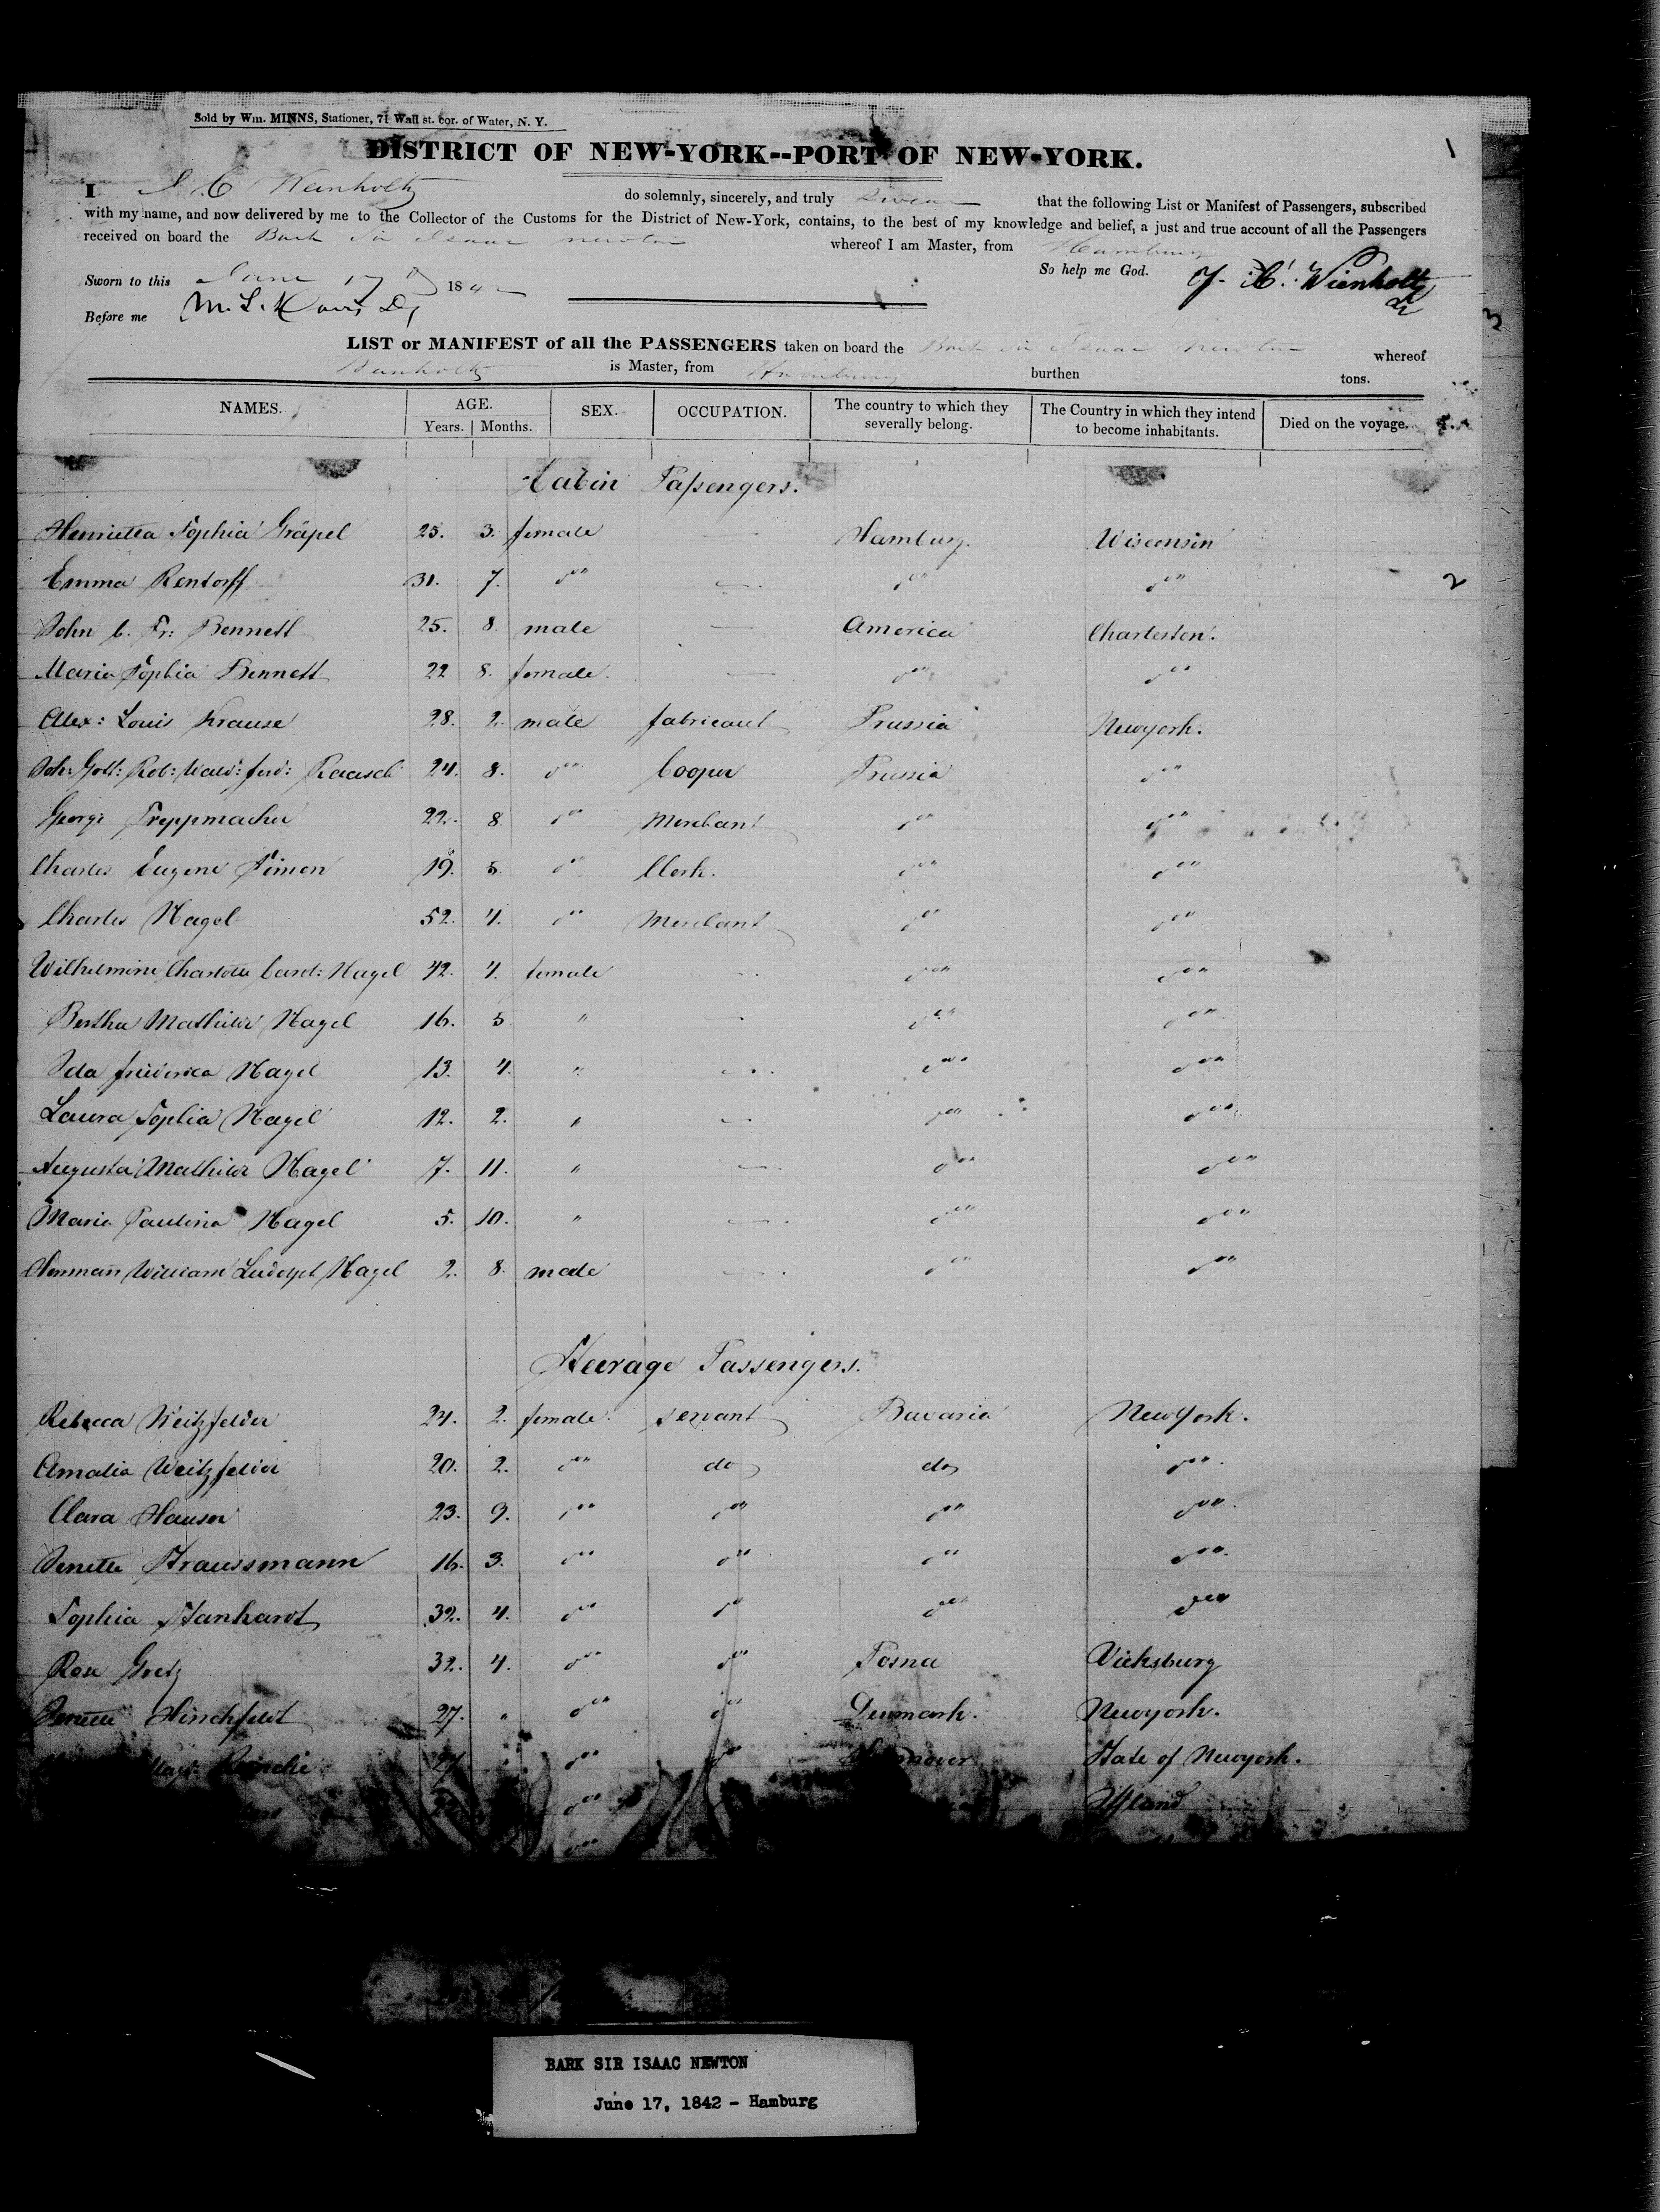 Sold by Wm. MINNS, Stationer, 71 Wall st. cor. of Water, N. Y.
1
DISTRICT OF NEW-YORK--PORT OF NEW-YORK.
I do solemnly, sincerely, and truly that the following List or Manifest of Passengers, subscribed
with my name, and now delivered by me to the Collector of the Customs for the District of New-York, contains, to the best of my knowledge and belief, a just and true account of all the Passengers
received on board the Bark Sir Isaac Newton whereof I am Master, from Hamburg
So help me God. J. C. Wienholtz
Sworn to this June 17 1842
Before me
3
LIST or MANIFEST of all the PASSENGERS taken on board the Bark Sir Isaac Newton whereof
is Master, from Hamburg burthen tons.
NAMES. AGE. Years. Months. SEX. OCCUPATION. The country to which they severally belong. The Country in which they intend to become inhabitants. Died on the voyage.
Cabin Passengers.
Henrietta Sophia Gräpel 25. 3. female — Hamburg. Wisconsin
Emma Rentorff 31. 7. do — do do
2
John C. Fr: Bennett 25. 8. male — America Charleston.
Maria Sophia Bennett 22 8. female. — do do
Alex: Louis Krause 28. 2. male fabricant Prussia Newyork.
Joh: Gott: Rob: Wald: ferd: Raasch 24. 8. do Cooper Prussia do
George Treppmacher 22. 8. do Merchant do do
Charles Eugene Simon 19. 5. do Clerk. do do
Charles Nagel 52. 4. do Merchant do do
Wilhelmine Charlotte Carol: Nagel 42. 4. female — do do
Bertha Mathilde Nagel 16. 5 " — do do
Ida frederica Nagel 13. 4. " — do do
Laura Sophia Nagel 12. 2. " — do do
Augusta Mathilde Nagel 7. 11. " — do do
Maria Paulina Nagel 5. 10. " — do do
Hermann William Ludolph Nagel 2. 8. male — do do
Steerage Passengers.
Rebecca Weitzfelder 24. 2. female. servant Bavaria NewYork.
Amalia Weitzfelder 20. 2. do do do do
Clara Hauser 23. 9. do do do do
Jenette Straussmann 16. 3. do do do do
Sophia Stanhardt 32. 4. do do do do
Rosa Goetz 32. 4. do do Posna Vicksburg
Jenette Hirschfeldt 27. " do do Denmark. Newyork.
27 do do State of Newyork.
do
do
BARK SIR ISAAC NEWTON
June 17, 1842 - Hamburg